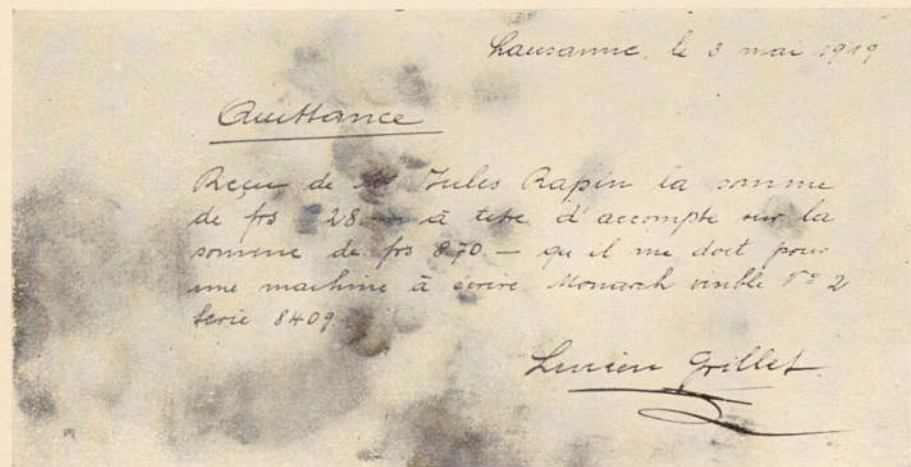 Lausanne, le 3 mai 1919
Quittance
Reçu de Mr Jules Rapin la somme
de frs 28 à titre d'accompte sur la
somme de frs 870 — qu'il me doit pour
une machine à écrire Monarch visible No 2
Serie 8409
Lucien Grillet